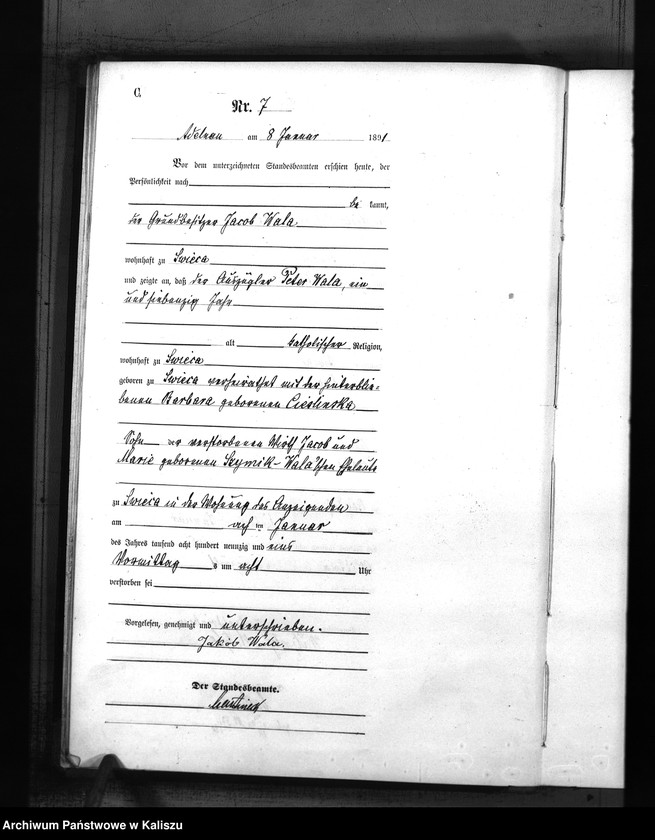 C.
Nr. 7
Adelnau am 8 Januar 1891
Vor dem unterzeichneten Standesbeamten erschien heute, der
Persönlichkeit nach
be kannt,
der Grundbesitzer Jacob Wala
wohnhaft zu Swieca
und zeigte an, daß der Auszügler Peter Wala, ein
und siebenzig Jahr
alt katholischer Religion,
wohnhaft zu Swieca
geboren zu Swieca verheirathet mit der hinterblie-
benen Barbara geborenen Cieslinska
Sohn der verstorbenen Wirth Jacob und
Marie geborenen Szymik-Wala'schen Eheleute
zu Swieca in der Wohnung des Anzeigenden
am acht ten Januar
des Jahres tausend acht hundert neunzig und eins
Vormittag s um acht Uhr
verstorben sei
Vorgelesen, genehmigt und unterschrieben.
Jakób Wala.
Der Standesbeamte.
Archiwum Państwowe w Kaliszu